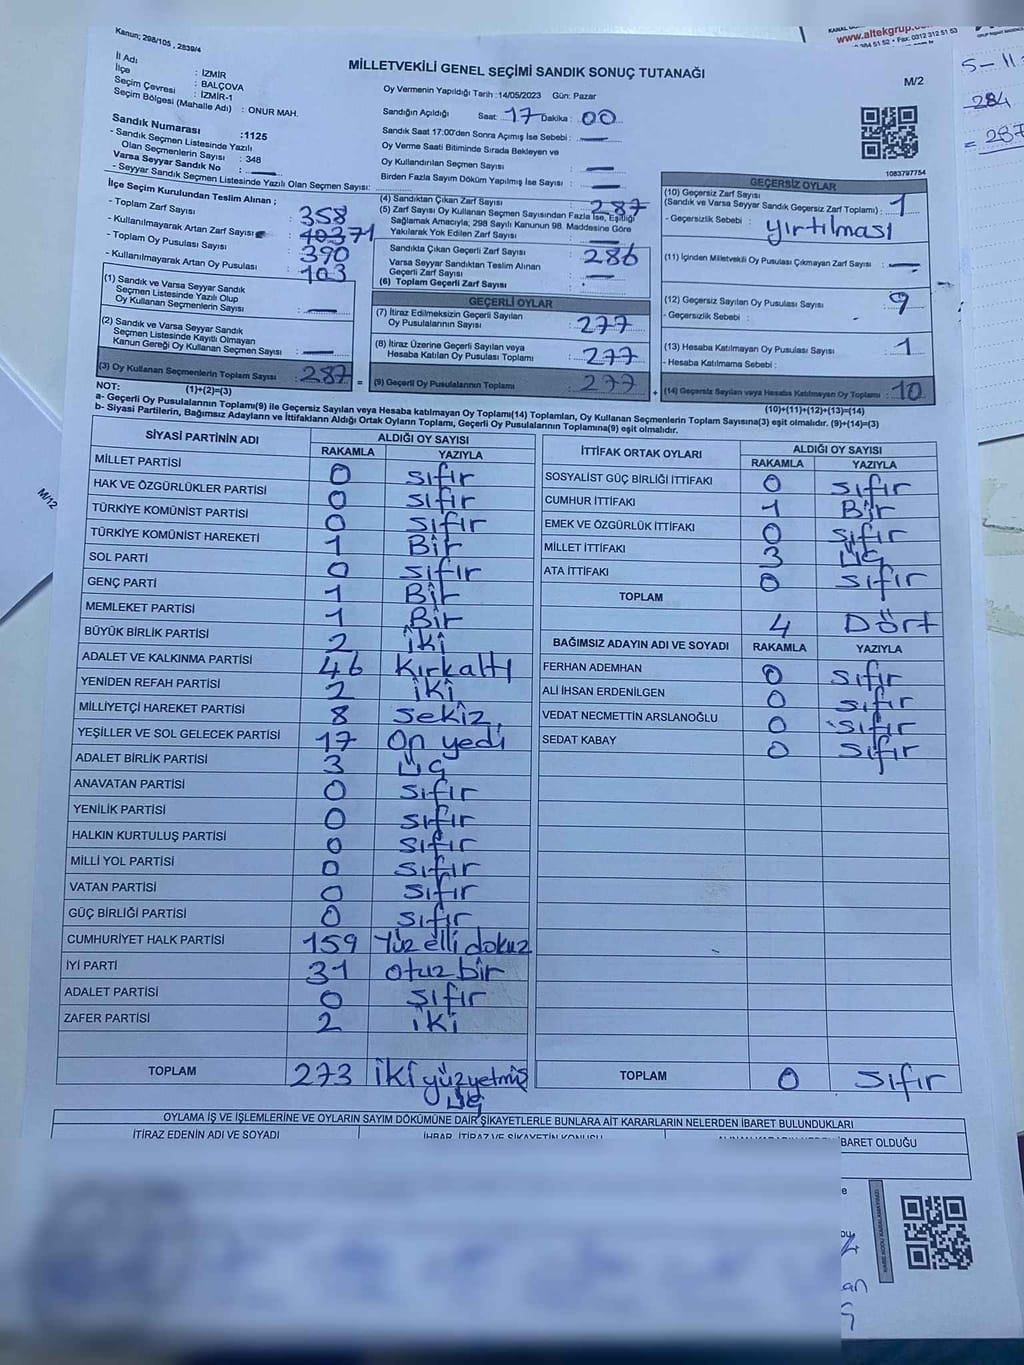 KANAL
www.altekgrup.co
384 51 52 • Fax: 0312 312 51 53
S-11
284
= 287
Kanun; 298/105 , 2839/4
MİLLETVEKİLİ GENEL SEÇİMİ SANDIK SONUÇ TUTANAĞI
M/2
İl Adı : İZMİR
İlçe : BALÇOVA
Seçim Çevresi : İZMİR-1
Seçim Bölgesi (Mahalle Adı) : ONUR MAH.
Sandık Numarası :1125
- Sandık Seçmen Listesinde Yazılı
Olan Seçmenlerin Sayısı : 348
Varsa Seyyar Sandık No : —
- Seyyar Sandık Seçmen Listesinde Yazılı Olan Seçmen Sayısı:
Oy Vermenin Yapıldığı Tarih :14/05/2023 Gün: Pazar
Sandığın Açıldığı Saat: 17 Dakika : 00
Sandık Saat 17:00'den Sonra Açımış İse Sebebi : —
Oy Verme Saati Bitiminde Sırada Bekleyen ve
Oy Kullandırılan Seçmen Sayısı : —
Birden Fazla Sayım Döküm Yapılmış İse Sayısı : —
1083797754
İlçe Seçim Kurulundan Teslim Alınan ;
- Toplam Zarf Sayısı : 358
- Kullanılmayarak Artan Zarf Sayısı : 71
- Toplam Oy Pusulası Sayısı : 390
- Kullanılmayarak Artan Oy Pusulası : 103
(1) Sandık ve Varsa Seyyar Sandık
Seçmen Listesinde Yazılı Olup
Oy Kullanan Seçmenlerin Sayısı : —
(2) Sandık ve Varsa Seyyar Sandık
Seçmen Listesinde Kayıtlı Olmayan
Kanun Gereği Oy Kullanan Seçmen Sayısı : —
(3) Oy Kullanan Seçmenlerin Toplam Sayısı : 287 =
(4) Sandıktan Çıkan Zarf Sayısı : 287
(5) Zarf Sayısı Oy Kullanan Seçmen Sayısından Fazla İse, Eşitliği
Sağlamak Amacıyla; 298 Sayılı Kanunun 98. Maddesine Göre
Yakılarak Yok Edilen Zarf Sayısı : —
Sandıkta Çıkan Geçerli Zarf Sayısı : 286
Varsa Seyyar Sandıktan Teslim Alınan
Geçerli Zarf Sayısı : —
(6) Toplam Geçerli Zarf Sayısı :
GEÇERLİ OYLAR
(7) İtiraz Edilmeksizin Geçerli Sayılan
Oy Pusulalarının Sayısı : 277
(8) İtiraz Üzerine Geçerli Sayılan veya
Hesaba Katılan Oy Pusulası Toplamı : 277
(9) Geçerli Oy Pusulalarının Toplamı : 277 +
GEÇERSİZ OYLAR
(10) Geçersiz Zarf Sayısı
(Sandık ve Varsa Seyyar Sandık Geçersiz Zarf Toplamı) : 1
- Geçersizlik Sebebi : yırtılması
(11) İçinden Milletvekili Oy Pusulası Çıkmayan Zarf Sayısı : —
(12) Geçersiz Sayılan Oy Pusulası Sayısı : 9
- Geçersizlik Sebebi :
(13) Hesaba Katılmayan Oy Pusulası Sayısı : 1
- Hesaba Katılmama Sebebi :
(14) Geçersiz Sayılan veya Hesaba Katılmayan Oy Toplamı : 10
NOT: (1)+(2)=(3) (10)+(11)+(12)+(13)=(14)
a- Geçerli Oy Pusulalarının Toplamı(9) ile Geçersiz Sayılan veya Hesaba katılmayan Oy Toplamı(14) Toplamları, Oy Kullanan Seçmenlerin Toplam Sayısına(3) eşit olmalıdır. (9)+(14)=(3)
b- Siyasi Partilerin, Bağımsız Adayların ve İttifakların Aldığı Ortak Oyların Toplamı, Geçerli Oy Pusulalarının Toplamına(9) eşit olmalıdır.
SİYASİ PARTİNİN ADI ALDIĞI OY SAYISI
RAKAMLA YAZIYLA
MİLLET PARTİSİ 0 sıfır
HAK VE ÖZGÜRLÜKLER PARTİSİ 0 sıfır
TÜRKİYE KOMÜNİST PARTİSİ 0 sıfır
TÜRKİYE KOMÜNİST HAREKETİ 1 Bir
SOL PARTİ 0 sıfır
GENÇ PARTİ 1 Bir
MEMLEKET PARTİSİ 1 Bir
BÜYÜK BİRLİK PARTİSİ 2 iki
ADALET VE KALKINMA PARTİSİ 46 Kırkaltı
YENİDEN REFAH PARTİSİ 2 iki
MİLLİYETÇİ HAREKET PARTİSİ 8 sekiz
YEŞİLLER VE SOL GELECEK PARTİSİ 17 On yedi
ADALET BİRLİK PARTİSİ 3 üç
ANAVATAN PARTİSİ 0 sıfır
YENİLİK PARTİSİ 0 sıfır
HALKIN KURTULUŞ PARTİSİ 0 sıfır
MİLLİ YOL PARTİSİ 0 sıfır
VATAN PARTİSİ 0 sıfır
GÜÇ BİRLİĞİ PARTİSİ 0 sıfır
CUMHURİYET HALK PARTİSİ 159 Yüz elli dokuz
İYİ PARTİ 31 otuz bir
ADALET PARTİSİ 0 sıfır
ZAFER PARTİSİ 2 iki
TOPLAM 273 iki yüz yetmiş üç
İTTİFAK ORTAK OYLARI ALDIĞI OY SAYISI
RAKAMLA YAZIYLA
SOSYALİST GÜÇ BİRLİĞİ İTTİFAKI 0 sıfır
CUMHUR İTTİFAKI 1 Bir
EMEK VE ÖZGÜRLÜK İTTİFAKI 0 sıfır
MİLLET İTTİFAKI 3 üç
ATA İTTİFAKI 0 sıfır
TOPLAM 4 Dört
BAĞIMSIZ ADAYIN ADI VE SOYADI RAKAMLA YAZIYLA
FERHAN ADEMHAN 0 sıfır
ALİ İHSAN ERDENİLGEN 0 sıfır
VEDAT NECMETTİN ARSLANOĞLU 0 sıfır
SEDAT KABAY 0 sıfır
TOPLAM 0 sıfır
OYLAMA İŞ VE İŞLEMLERİNE VE OYLARIN SAYIM DÖKÜMÜNE DAİR ŞİKAYETLERLE BUNLARA AİT KARARLARIN NELERDEN İBARET BULUNDUKLARI
İTİRAZ EDENİN ADI VE SOYADI İHBAR, İTİRAZ VE ŞİKAYETİN KONUSU İBARET OLDUĞU
M/12